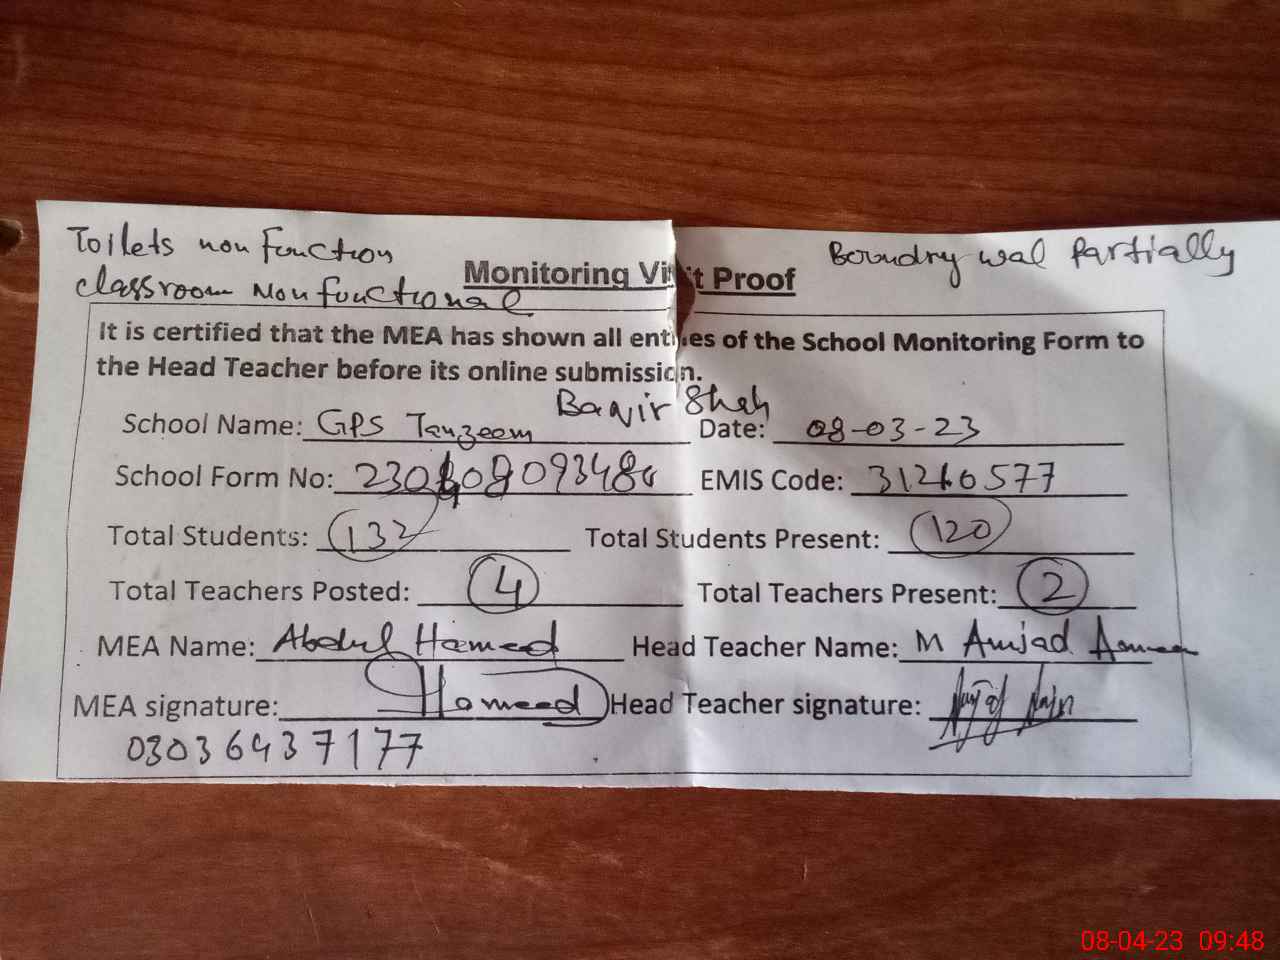 Toilets non Function
classroom Nonfunctional
Boundry wal Partially
Monitoring Visit Proof
It is certified that the MEA has shown all entries of the School Monitoring Form to
the Head Teacher before its online submission.
School Name: GPS Tanzeem Shah Date: 08-03-23
School Form No: EMIS Code: 31260577
Total Students: 132 Total Students Present: 120
Total Teachers Posted: 4 Total Teachers Present: 2
MEA Name: Abdul Hameed Head Teacher Name: M Amjad
MEA signature: Hameed Head Teacher signature:
03036437177
08-04-23 09:48